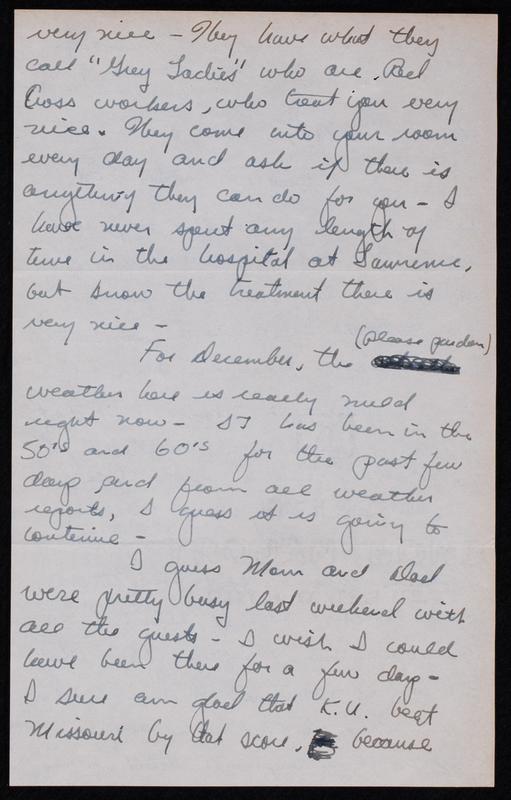 very nice - They have what they
call "Grey Ladies" who are Red
Cross workers, who treat you very
nice. They come into your room
every day and ask if there is
anything they can do for you - I
have never spent any length of
time in the hospital at Lawrence,
but know the treatment there is
very nice -
(please pardon)
For December, the
weather here is really mild
right now - It has been in the
50's and 60's for the past few
days and from all weather
reports, I guess it is going to
continue -
I guess Mom and Dad
were pretty busy last weekend with
all the guests - I wish I could
have been there for a few days -
I sure am glad that K.U. beat
Missouri by that score, because